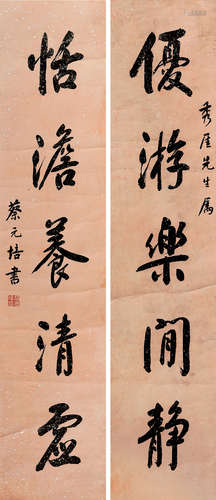 優游樂閒静
秀厓先生属
恬澹養清虛
蔡元培書